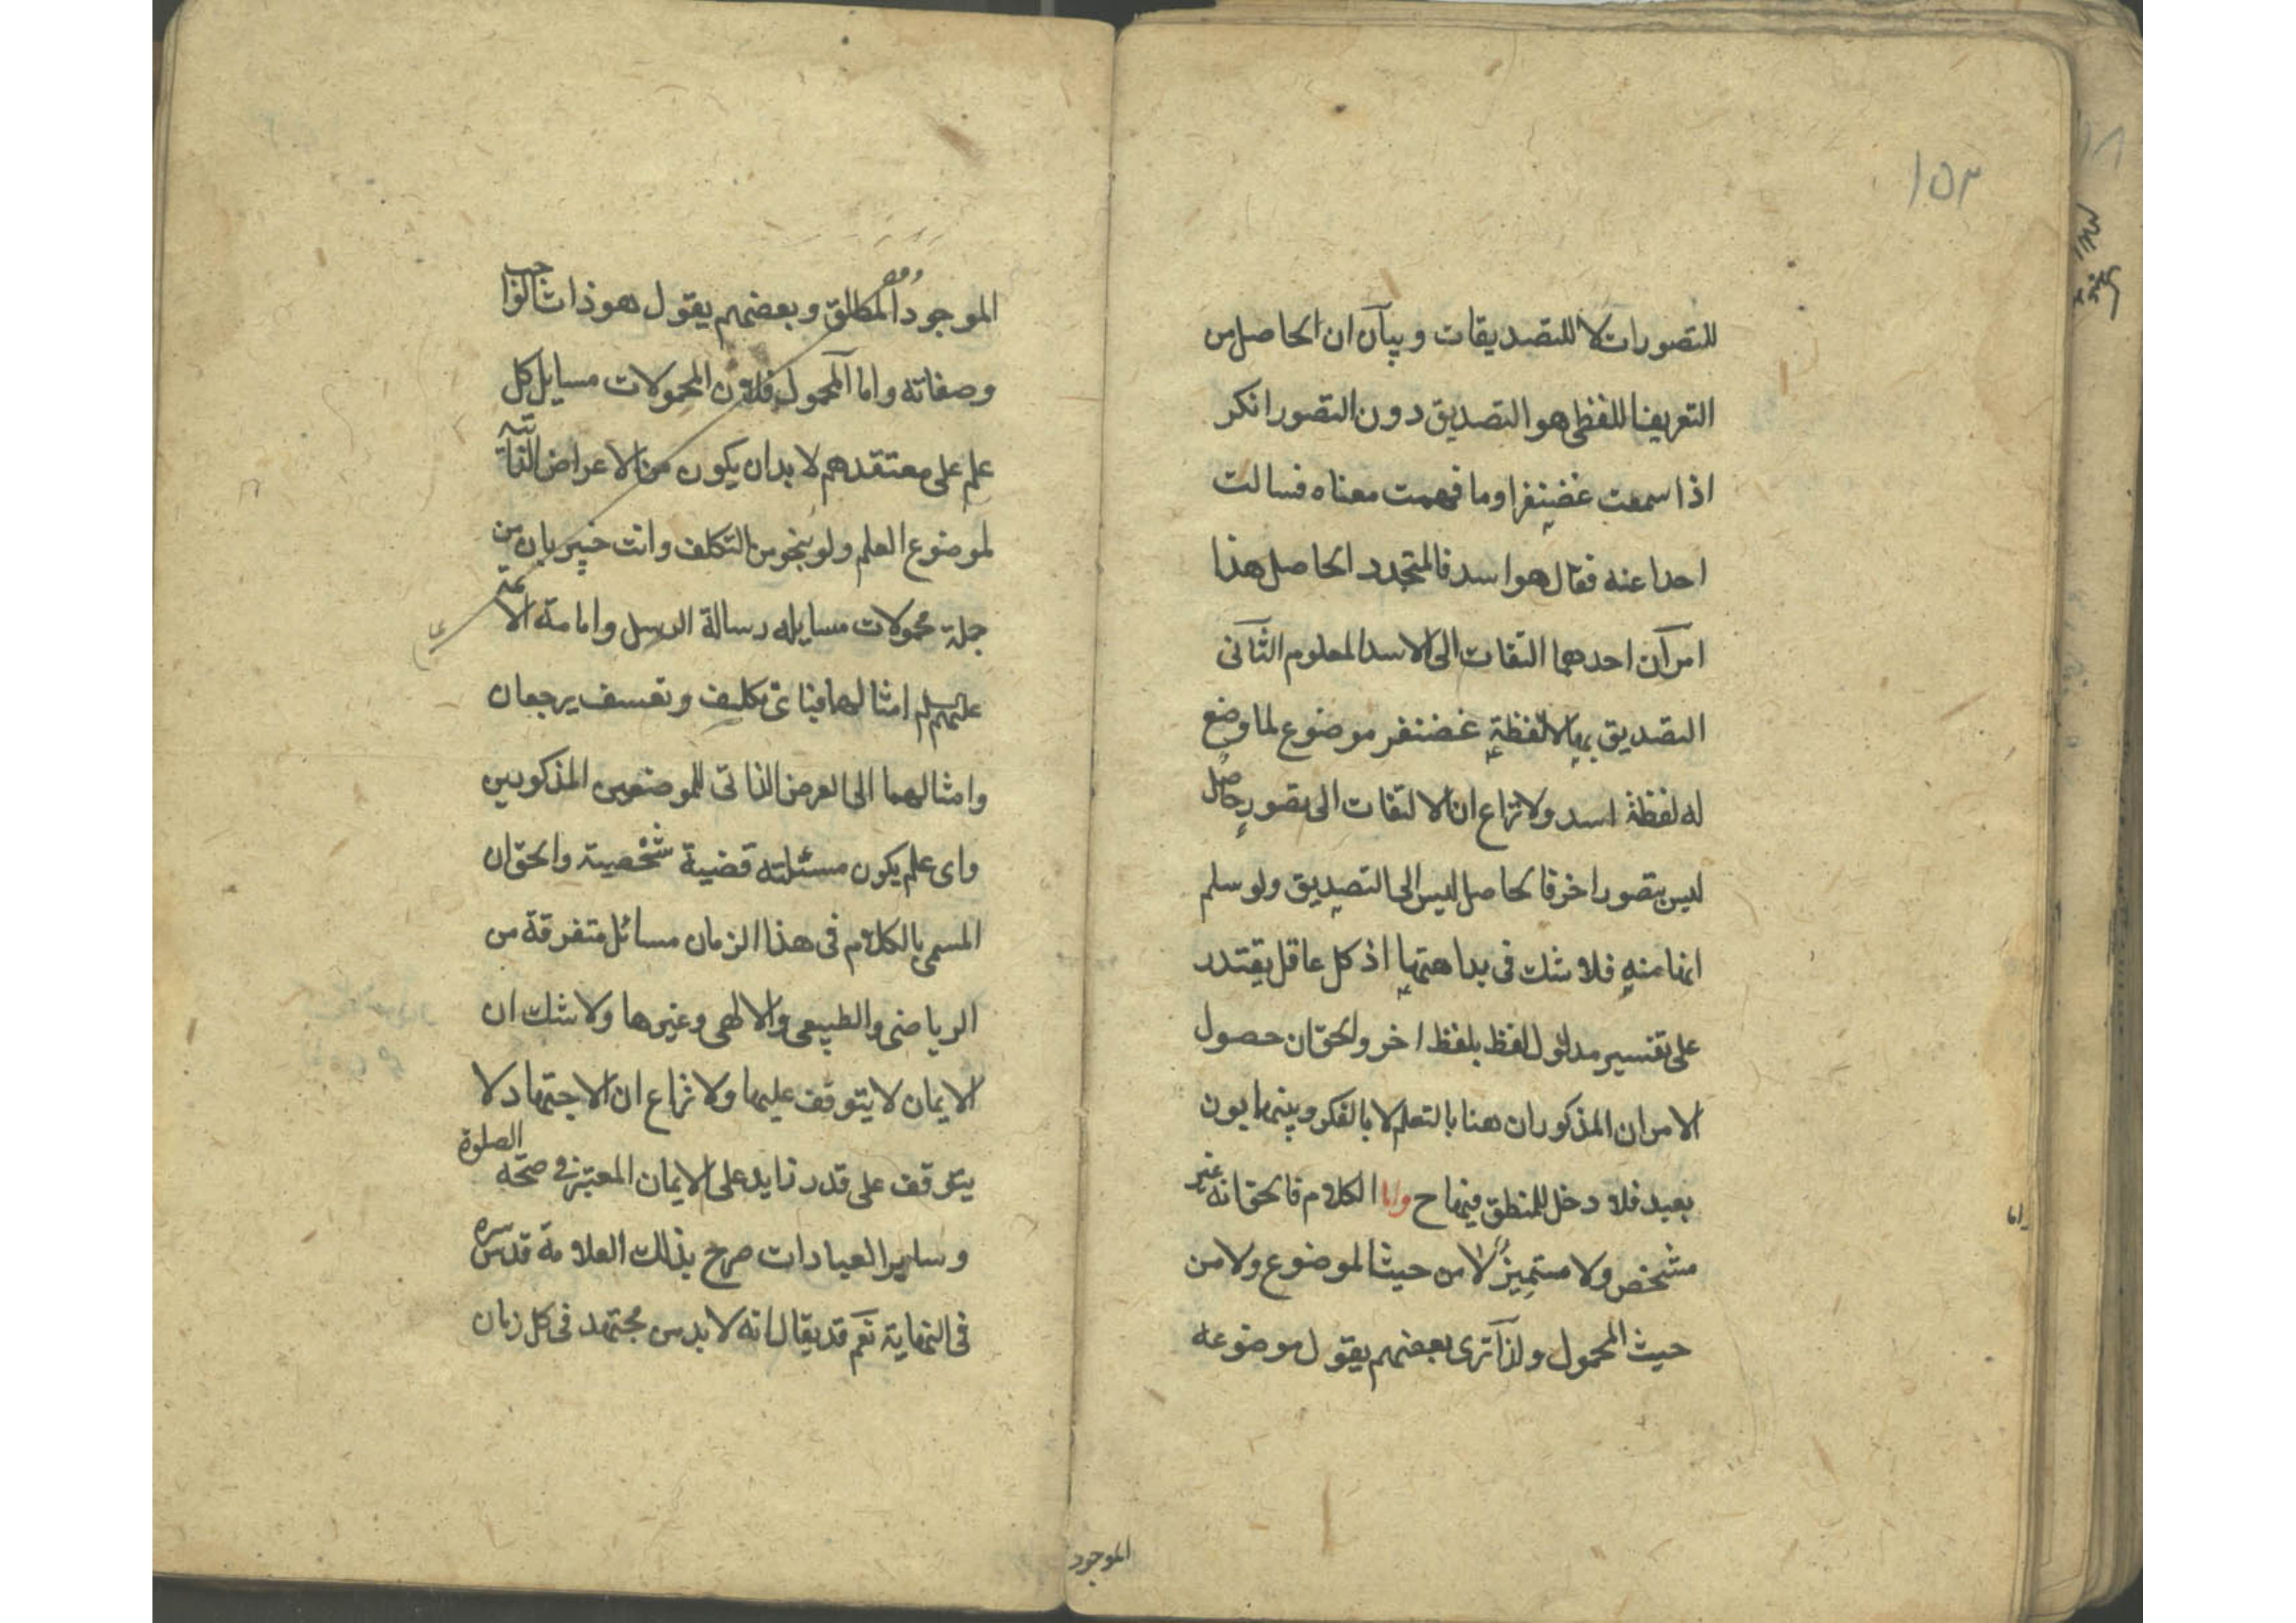 ١٥٣
للتصورات لا للتصديقات وبيان ان الحاصل من
التعريف اللفظى هو التصديق دون التصور انكر
اذا سمعت غضنفرا وما فهمت معناه فسالت
احدا عنه فقال هو اسد فالمتجدد الحاصل هذا
امران احدهما التفات الى الاسد المعلوم الثانى
التصديق بان لفظة غضنفر موضوع لما وضع
له لفظة اسد ولا نزاع ان الالتفات الى تصور حاصل
ليس بتصور اخر فالحاصل ليس الى التصديق ولو سلم
انها منه فلا شك فى بداهتها اذ كل عاقل يقتدر
على تفسير مدلول لفظ بلفظ اخر والحق ان حصول
الامران المذكوران هنا بالتعلم لا بالفكر وبينهما بون
بعيد فلا دخل للمنطق فيها ح واما الكلام فالحق انه غير
مشخص ولا متميز لا من حيث الموضوع ولا من
حيث المحمول ولذا ترى بعضهم يقول موضوعه
اما
الموجود
الموجود المطلق وبعضهم يقول هو ذات الواجب
وصفاته واما المحمول فلان المحمولات مسايل كل
علم على معتقدهم لا بد ان يكون من الاعراض الذاتية
لموضوع العلم ولو بنحو من التكلف وانت خبير بان من
جملة محمولات مسايله رسالة الرسل وامامة الائمة
عليهم السلم امثالهما فباى تكليف وتعسف يرجعان
وامثالهما الى العرض الذاتى للموضوعين المذكورين
واى علم يكون مسئلته قضية شخصية والحق ان
المسمى بالكلام فى هذا الزمان مسائل متفرقة من
الرياضى والطبيعى والالهى وغيرها ولا شك ان
الايمان لا يتوقف عليها ولا نزاع ان الاجتهاد لا
يتوقف على قدر زايد على الايمان المعتبر فى صحة الصلوة
وساير العبادات صرح بذلك العلامة قدس سره
فى النهاية نعم قد يقال انه لا بد من مجتهد فى كل زمان